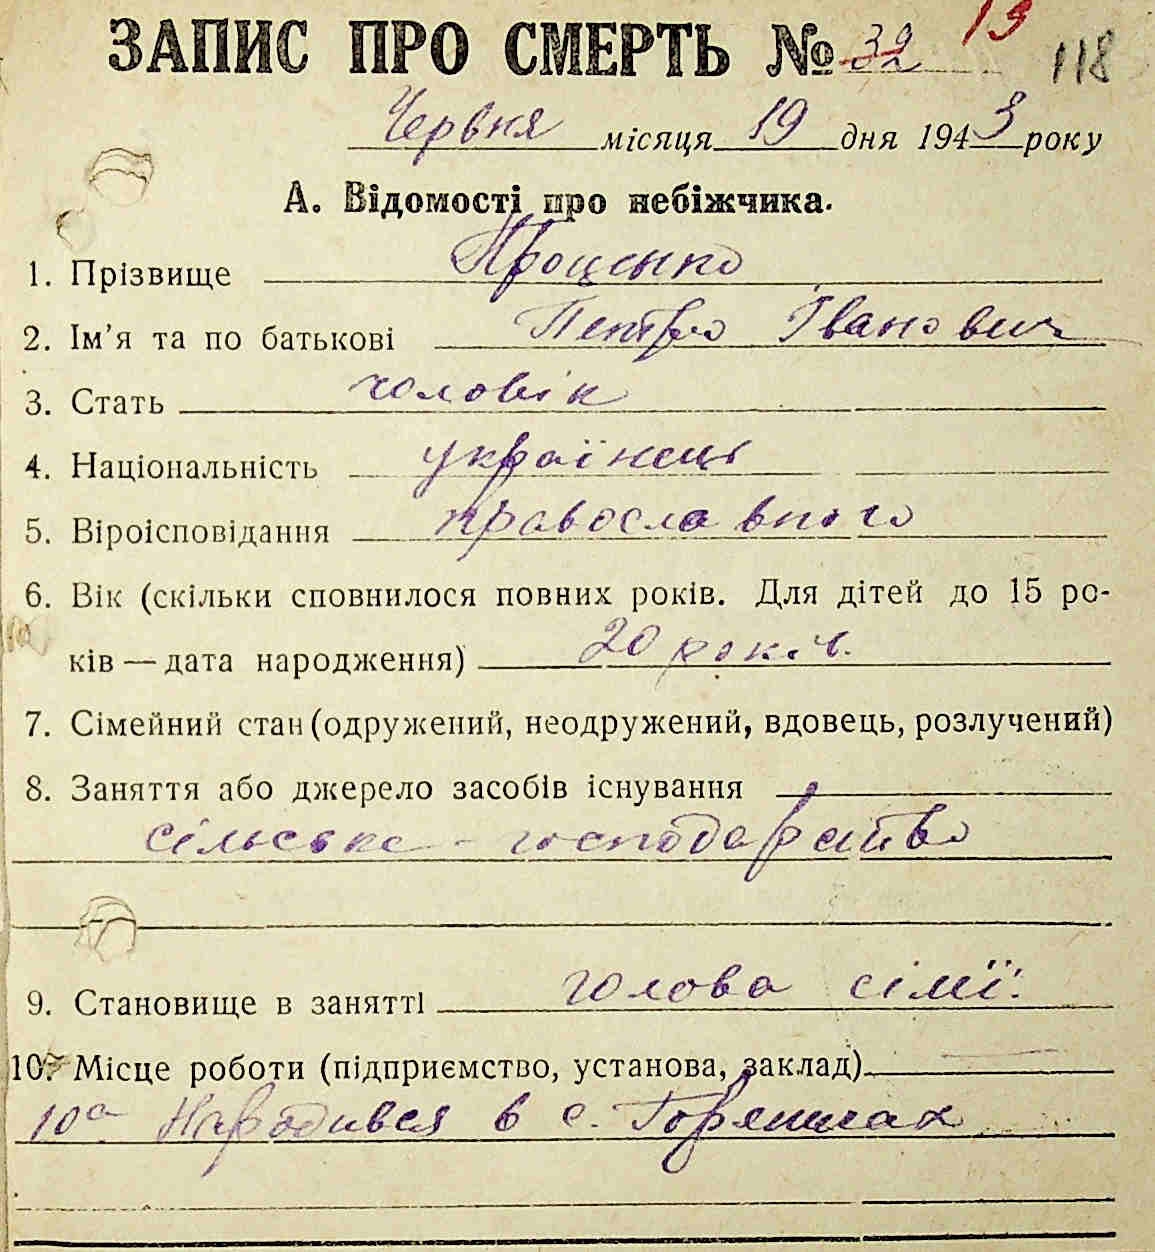 ЗАПИС ПРО СМЕРТЬ № 32 13 118
Червня місяця 19 дня 1943 року
А. Відомості про небіжчика.
1. Прізвище Проценко
2. Ім'я та по батькові Петро Іванович
3. Стать чоловік
4. Національність українець
5. Віроісповідання православного
6. Вік (скільки сповнилося повних років. Для дітей до 15 ро-
ків — дата народження) 20 рок.
7. Сімейний стан (одружений, неодружений, вдовець, розлучений)
8. Заняття або джерело засобів існування
сільське - господарство
9. Становище в занятті голова сімї.
10. Місце роботи (підприємство, установа, заклад)
10а Народився в с.